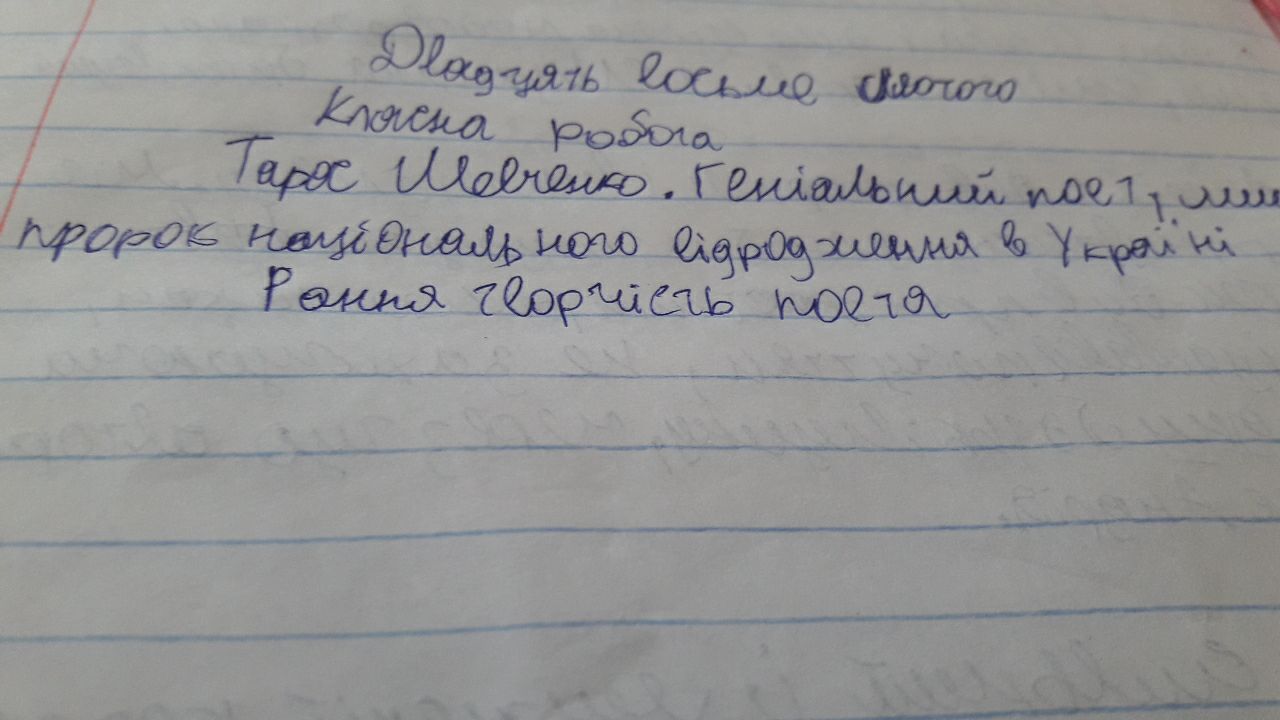 Двадцять восьме лютого
Класна робота
Тарас Шевченко. Геніальний поет,
пророк національного відродження в Україні
Рання творчість поета